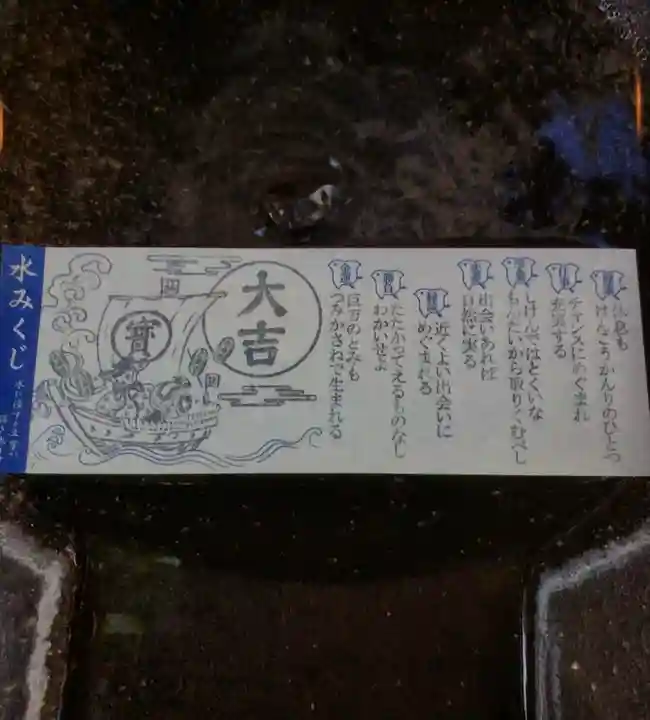 水みくじ
大吉
寶
けんこうかんりのひとつ
チャンスにめぐまれ
充実する
しけんではとくいな
もんだいから取りくむべし
出会いあれば
自然に実る
近くよい出会いに
めぐまれる
たたかってえるものなし
わかいせよ
巨万のとみも
つみかさねで生まれる